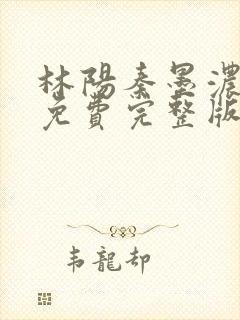 林陽秦墨濃
免費完整版
韦龍却